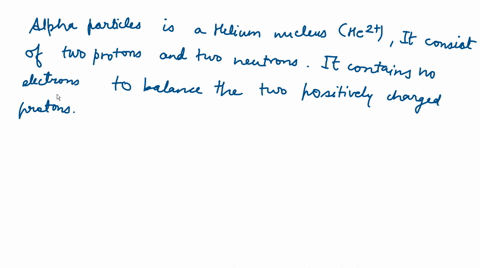 Alpha particles is a Helium nucleus (He2+), It consist
of two protons and two neutrons. It contains no
electrons to balance the two positively charged
protons.